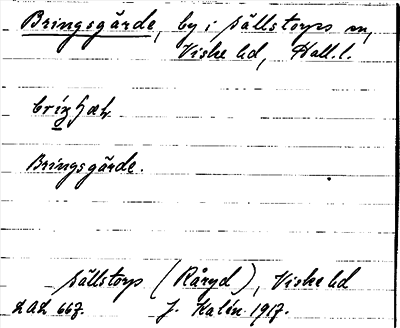 Bringsgärde, by i Sällstorps sn,
Viske hd, Hall.l.
Bringsgärde.
Sällstorp (Råryd), Viske hd
LAL 667. J. Kalén 1917.